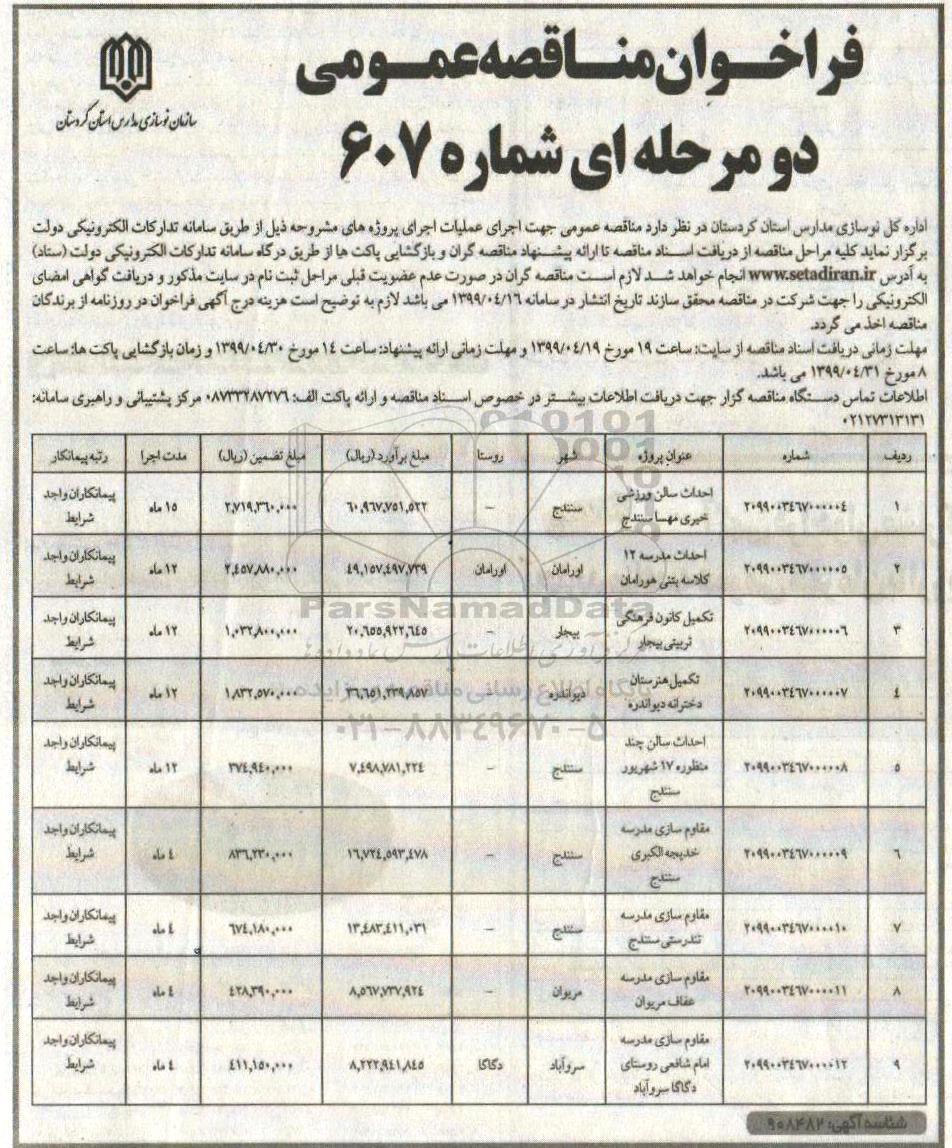 فراخوان مناقصه عمومی
دو مرحله ای شماره ۶۰۷
سازمان نوسازی مدارس استان کردستان
اداره کل نوسازی مدارس استان کردستان در نظر دارد مناقصه عمومی جهت اجرای عملیات اجرای پروژه های مشروحه ذیل از طریق سامانه تدارکات الکترونیکی دولت
برگزار نماید کلیه مراحل مناقصه از دریافت اسناد مناقصه تا ارائه پیشنهاد مناقصه گران و بازگشایی پاکت ها از طریق درگاه سامانه تدارکات الکترونیکی دولت (ستاد)
به آدرس www.setadiran.ir انجام خواهد شد لازم است مناقصه گران در صورت عدم عضویت قبلی مراحل ثبت نام در سایت مذکور و دریافت گواهی امضای
الکترونیکی را جهت شرکت در مناقصه محقق سازند تاریخ انتشار در سامانه ۱۳۹۹/۰۴/۱۶ می باشد لازم به توضیح است هزینه درج آگهی فراخوان در روزنامه از برندگان
مناقصه اخذ می گردد.
مهلت زمانی دریافت اسناد مناقصه از سایت: ساعت ۱۹ مورخ ۱۳۹۹/۰۴/۱۹ و مهلت زمانی ارائه پیشنهاد: ساعت ۱۴ مورخ ۱۳۹۹/۰۴/۳۰ و زمان بازگشایی پاکت ها: ساعت
۸ مورخ ۱۳۹۹/۰۴/۳۱ می باشد.
اطلاعات تماس دستگاه مناقصه گزار جهت دریافت اطلاعات بیشتر در خصوص اسناد مناقصه و ارائه پاکت الف: ۰۸۷۳۳۲۸۷۲۷۶ مرکز پشتیبانی و راهبری سامانه:
۰۲۱۲۷۳۱۳۱۳۱
ردیف شماره عنوان پروژه شهر روستا مبلغ برآورد (ریال) مبلغ تضمین (ریال) مدت اجرا رتبه پیمانکار
۱ ۲۰۹۹۰۰۳۴۶۷۰۰۰۰۰۴ احداث سالن ورزشی خیری مهسا سنندج سنندج – ۶۰,۹۶۷,۷۵۱,۵۲۲ ۲,۷۱۹,۳۶۰,۰۰۰ ۱۵ ماه پیمانکاران واجد شرایط
۲ ۲۰۹۹۰۰۳۴۶۷۰۰۰۰۰۵ احداث مدرسه ۱۲ کلاسه بتنی هورامان اورامان اورامان ۴۹,۱۵۷,۴۹۷,۷۳۹ ۲,۴۵۷,۸۸۰,۰۰۰ ۱۲ ماه پیمانکاران واجد شرایط
۳ ۲۰۹۹۰۰۳۴۶۷۰۰۰۰۰۶ تکمیل کانون فرهنگی تربیتی بیجار بیجار – ۲۰,۶۵۵,۹۲۲,۶۴۵ ۱,۰۳۲,۸۰۰,۰۰۰ ۱۲ ماه پیمانکاران واجد شرایط
۴ ۲۰۹۹۰۰۳۴۶۷۰۰۰۰۰۷ تکمیل هنرستان دخترانه دیواندره دیواندره – ۳۶,۶۵۱,۲۳۹,۸۵۷ ۱,۸۳۲,۵۷۰,۰۰۰ ۱۲ ماه پیمانکاران واجد شرایط
۵ ۲۰۹۹۰۰۳۴۶۷۰۰۰۰۰۸ احداث سالن چند منظوره ۱۷ شهریور سنندج سنندج – ۷,۴۹۸,۷۸۱,۲۲۴ ۳۷۴,۹۴۰,۰۰۰ ۱۲ ماه پیمانکاران واجد شرایط
۶ ۲۰۹۹۰۰۳۴۶۷۰۰۰۰۰۹ مقاوم سازی مدرسه خدیجه الکبری سنندج سنندج – ۱۶,۷۲۴,۵۹۳,۴۷۸ ۸۳۶,۲۳۰,۰۰۰ ۴ ماه پیمانکاران واجد شرایط
۷ ۲۰۹۹۰۰۳۴۶۷۰۰۰۰۱۰ مقاوم سازی مدرسه تندرستی سنندج سنندج – ۱۳,۴۸۳,۴۱۱,۰۳۱ ۶۷۴,۱۸۰,۰۰۰ ۴ ماه پیمانکاران واجد شرایط
۸ ۲۰۹۹۰۰۳۴۶۷۰۰۰۰۱۱ مقاوم سازی مدرسه عفاف مریوان مریوان – ۸,۵۶۷,۷۳۷,۹۲۴ ۴۲۸,۳۹۰,۰۰۰ ۴ ماه پیمانکاران واجد شرایط
۹ ۲۰۹۹۰۰۳۴۶۷۰۰۰۰۱۲ مقاوم سازی مدرسه امام شافعی روستای دگاگا سروآباد سروآباد دگاگا ۸,۲۲۲,۹۴۱,۸۴۵ ۴۱۱,۱۵۰,۰۰۰ ۴ ماه پیمانکاران واجد شرایط
ParsNamadData
پایگاه اطلاع رسانی مناقصه و مزایده
۰۲۱-۸۸۳۴۹۶۷۰-۵
شناسه آگهی: ۹۰۸۴۸۲